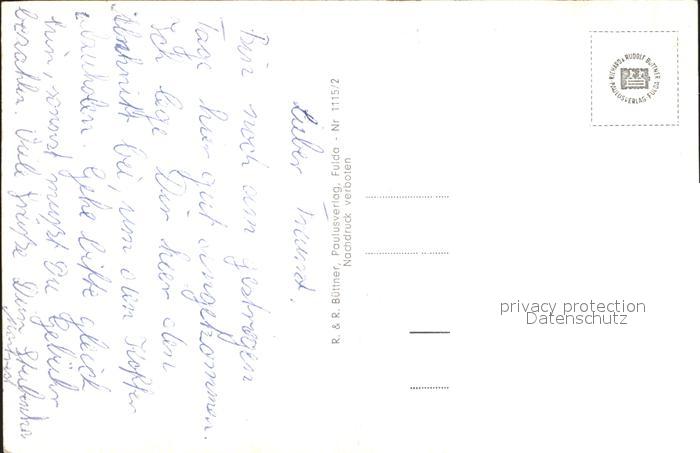 Lieber Freund!
Bin noch am gestrigen
Tage hier gut angekommen.
Ich lege Dir hier den
Abschnitt bei, um den Koffer
abzuholen. Gehe bitte gleich
hin, sonst mußt Du Gebühr
bezahlen. Viele Grüße Dein
R. & R. Büttner, Paulusverlag, Fulda - Nr 1115/2
Nachdruck verboten
RICHARD & RUDOLF BÜTTNER
PAULUSVERLAG FULDA
privacy protection
Datenschutz